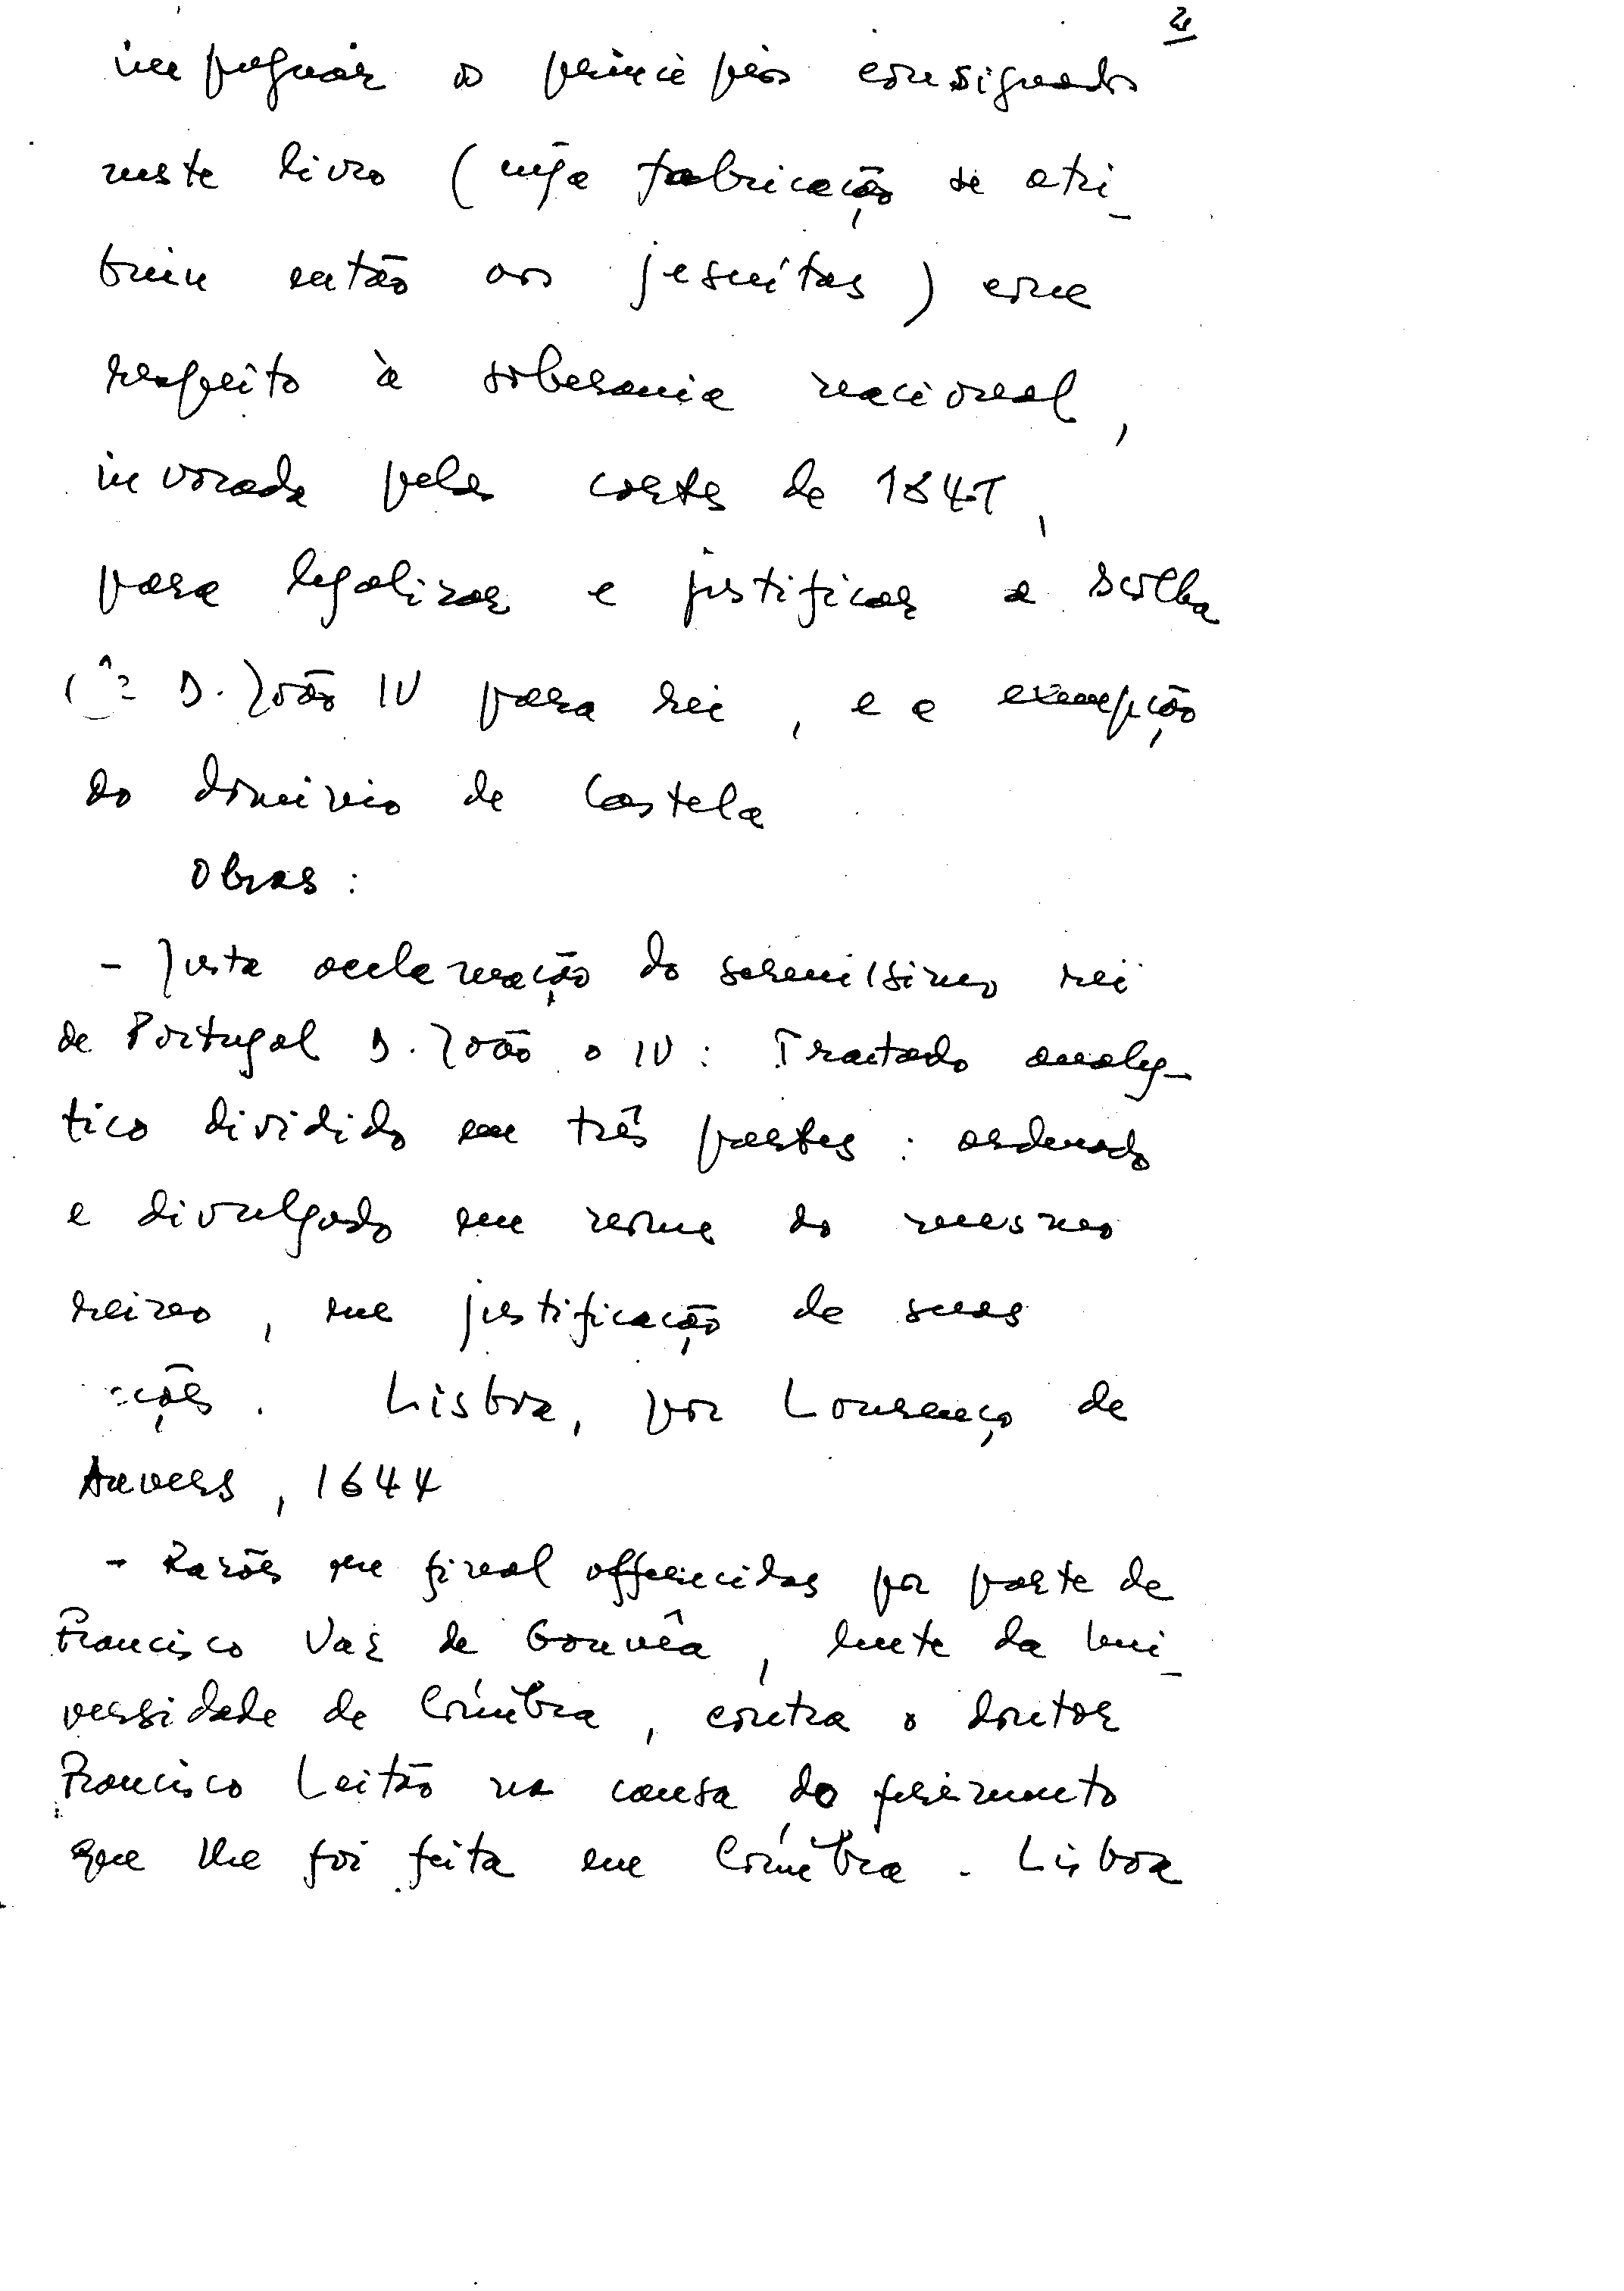 2
impugnar os princípios consignados
neste livro (cuja fabricação se atri-
buiu então aos jesuítas) com
respeito à soberania nacional,
invocada pelas cortes de 1641,
para legalizar e justificar a escolha
D. João IV para rei, e a exempção
do domínio de Castela
Obras:
- Justa acclamação do sereníssimo rei
de Portugal D. João o IV: Tractado analy-
tico dividido em três partes: ordenado
e divulgado em nome do mesmo
reino, em justificação de suas
cções. Lisboa, por Lourenço de
Anvers, 1644
- Razões em final offerecidas por parte de
Francisco Vaz de Gouvêa, lente da Uni-
versidade de Coimbra, contra o doutor
Francisco Leitão na causa do ferimento
que lhe foi feita em Coimbra. Lisboa